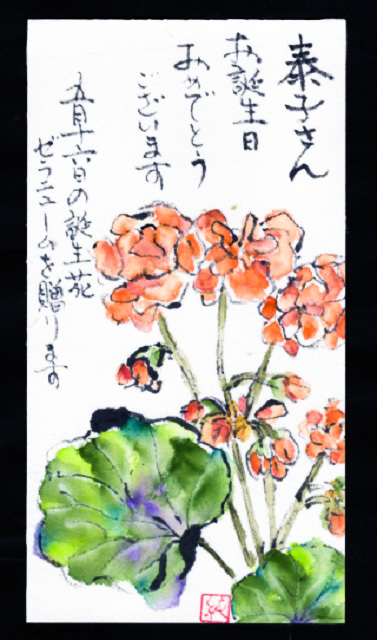 泰子さん
お誕生日
おめでとう
ございます
五月十六日の誕生花
ゼラニュームを贈ります